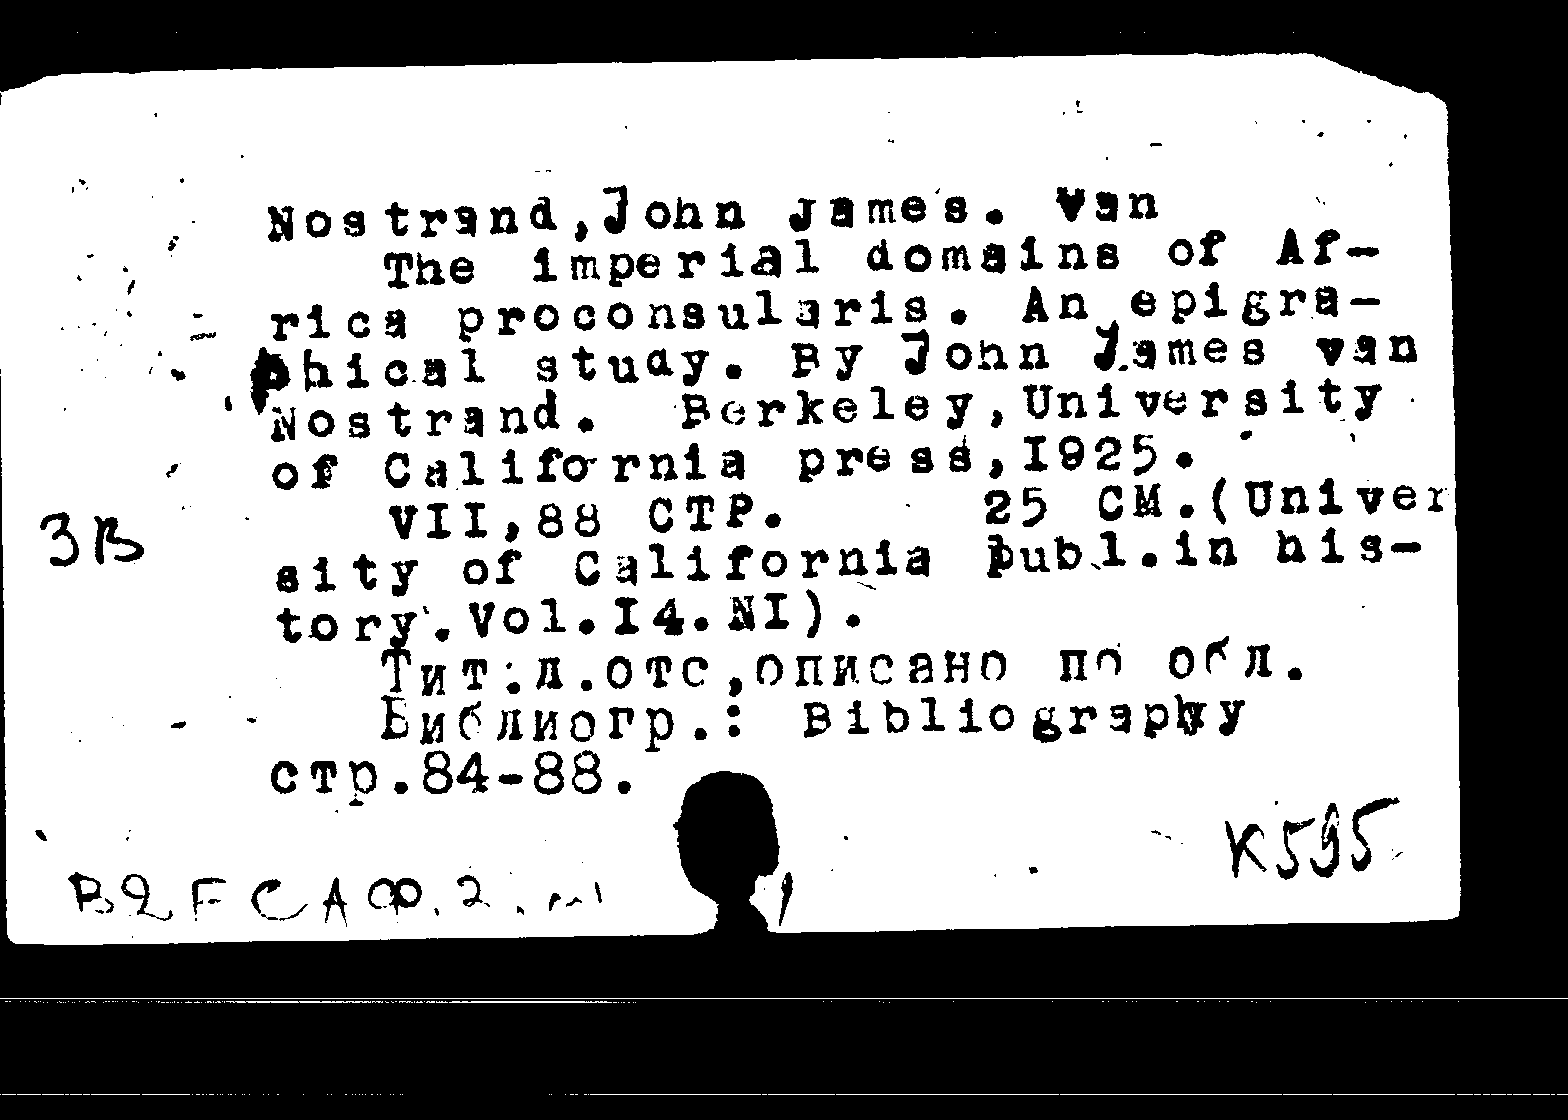 Nostrand,John James. Van
The imperial domains of Af-
rica proconsularis. An epigra-
phical study. By John James van
Nostrand. Berkeley,University
of California press,I925.
VII,88 СТР. 25 СМ.(Univer
3В
sity of California publ.in his-
tory.Vol.I4.NI).
Тит.л.отс,описано по обл.
Библиогр.: Bibliography
стр.84-88.
К595